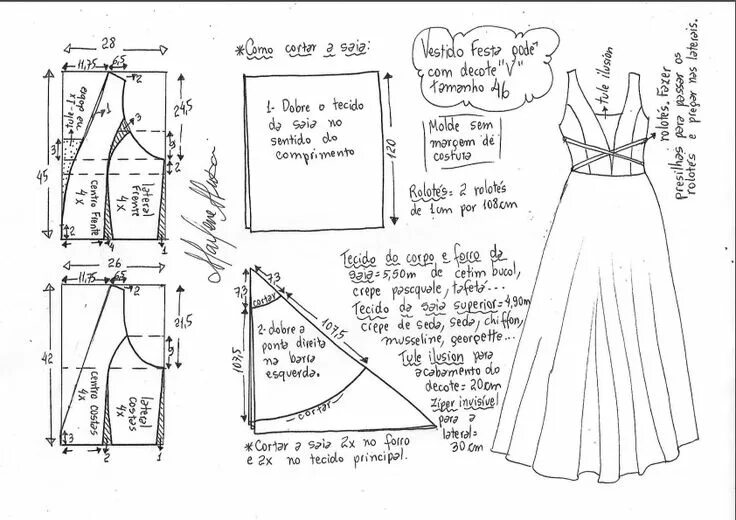 Vestido Festa godê
com decote "V"
tamanho 46
Molde sem
margem de
costura
Rolotês= 2 rolotês
de 1cm por 108cm
*Como cortar a saia:
1- Dobre o tecido
da saia no
sentido do
comprimento
120
7,3
7,3
cortar
107,5
107,5
2- dobre a
ponta direita
na barra
esquerda.
cortar
*Cortar a saia 2x no forro
e 2x no tecido principal.
Tecido do corpo e forro da
saia=5,50m de cetim bucol,
crepe pasquale, tafetá...
Tecido da saia superior=4,90m
crepe de seda, seda, chiffon,
musseline, georgette...
Tule ilusion para
acabamento do
decote=20cm
Zíper invisível
para a
lateral=
30cm
tule ilusion
rolotês. Fazer
presilhas para passar os
rolotês e pregar nas laterais.
28
11,75
6,5
2
24,5
1
3
9
2
3
45
2
4
1
1x-tule
centro Frente
4x
lateral
frente
4x
26
11,75
6,5
2
21,5
9
42
3
2
1
centro costas
4x
lateral
costas
4x